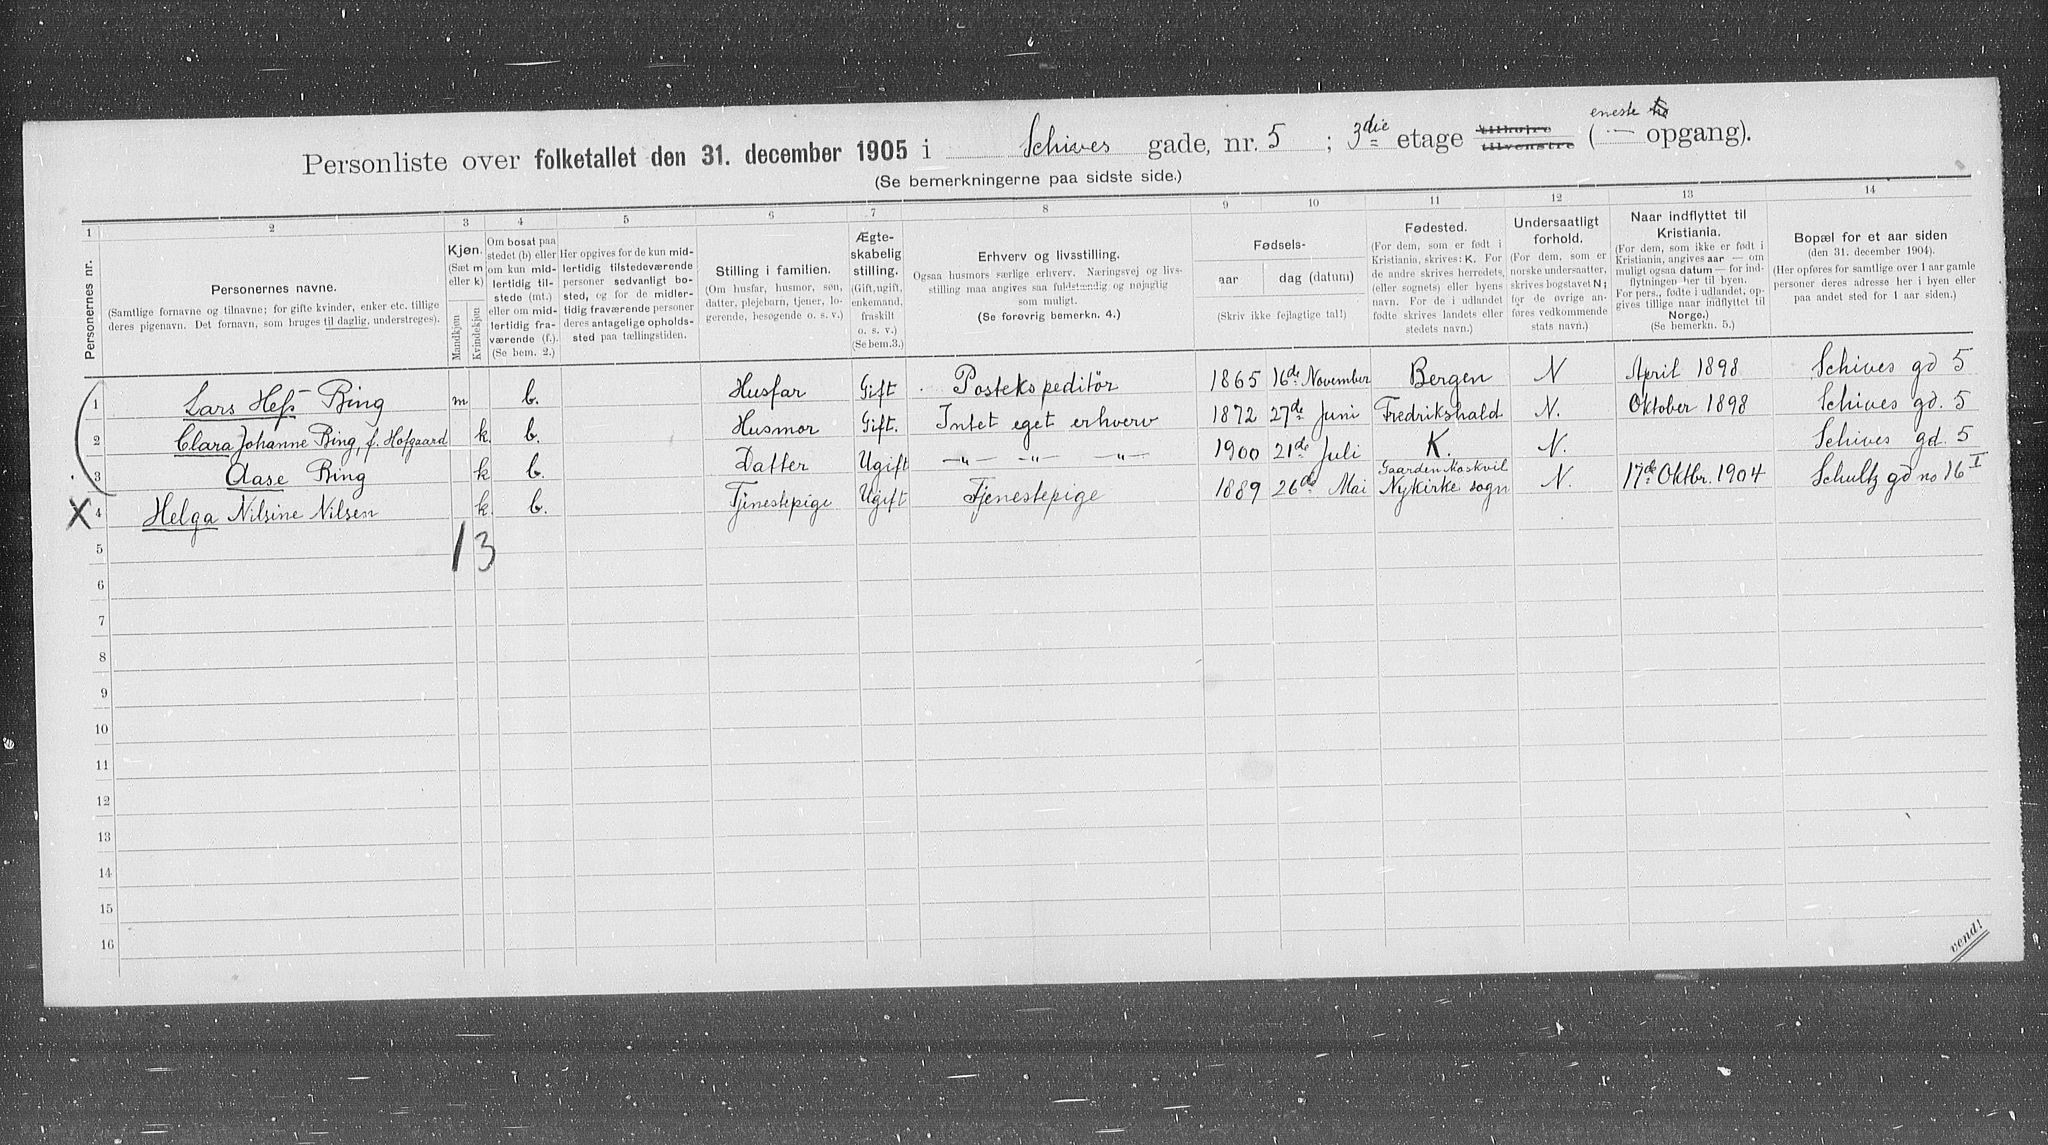 Personliste over folketallet den 31. december 1905 i Schives gade, nr. 5 ; 3die etage tilhøire tilvenstre ( eneste — opgang).
(Se bemerkningerne paa sidste side.)
1 2 3 4 5 6 7 8 9 10 11 12 13 14
Personernes nr.
Personernes navne.
(Samtlige fornavne og tilnavne; for gifte kvinder, enker etc. tillige
deres pigenavn. Det fornavn, som bruges til daglig, understreges).
Kjøn.
(Sæt m
eller k)
Mandkjøn
Kvindekjøn
Om bosat paa
stedet (b) eller
om kun mid-
lertidig til-
stede (mt.)
eller om mid-
lertidig fra-
værende (f.).
(Se bem. 2.)
Her opgives for de kun mid-
lertidig tilstedeværende
personer sedvanligt bo-
sted, og for de midler-
tidig fraværende personer
deres antagelige opholds-
sted paa tællingstiden.
Stilling i familien.
(Om husfar, husmor, søn,
datter, plejebarn, tjener, lo-
gerende, besøgende o. s. v.)
Ægte-
skabelig
stilling.
(Gift, ugift,
enkemand,
fraskilt
o. s. v.)
(Se bem.3.)
Erhverv og livsstilling.
Ogsaa husmors særlige erhverv. Næringsvej og livs-
stilling maa angives saa fuldstændig og nøjagtig
som muligt.
(Se forøvrig bemerkn. 4.)
Fødsels-
aar dag (datum)
(Skriv ikke fejlagtige tal!)
Fødested.
(For dem, som er født i
Kristiania, skrives: K. For
de andre skrives herredets,
(eller sognets) eller byens
navn. For de i udlandet
fødte skrives landets eller
stedets navn.)
Undersaatligt
forhold.
(For dem, som er
norske undersaatter,
skrives bogstavet N;
for de øvrige an-
føres vedkommende
stats navn.)
Naar indflyttet til
Kristiania.
(For dem, som ikke er født i
Kristiania, angives aar — om
muligt ogsaa datum — for ind-
flytningen her til byen.
For pers., fødte i udlandet, op-
gives tillige naar indflyttet til
Norge.)
(Se bemerkn. 5.)
Bopæl for et aar siden
(den 31. december 1904).
(Her opføres for samtlige over 1 aar gamle
personer deres adresse her i byen eller
paa andet sted for 1 aar siden.)
1 Lars Hess Bing m b. Husfar Gift Postekspeditør 1865 16de November Bergen N April 1898 Schives gd 5
2 Clara Johanne Bing, f. Hofgaard k b. Husmor Gift. Intet eget erhverv 1872 27de Juni Fredrikshald N. Oktober 1898 Schives gd. 5
3 Aase Bing k b. Datter Ugift —"— —"— —"— 1900 21de Juli K. N. Schives gd. 5
X 4 Helga Nilsine Nilsen k. b. Tjenestepige Ugift Tjenestepige 1889 26de Mai Gaarden Moskvil Nykirke sogn N. 17de Oktbr. 1904 Schultz gd no 16 I
1 3
5
6
7
8
9
10
11
12
13
14
15
16
vend!